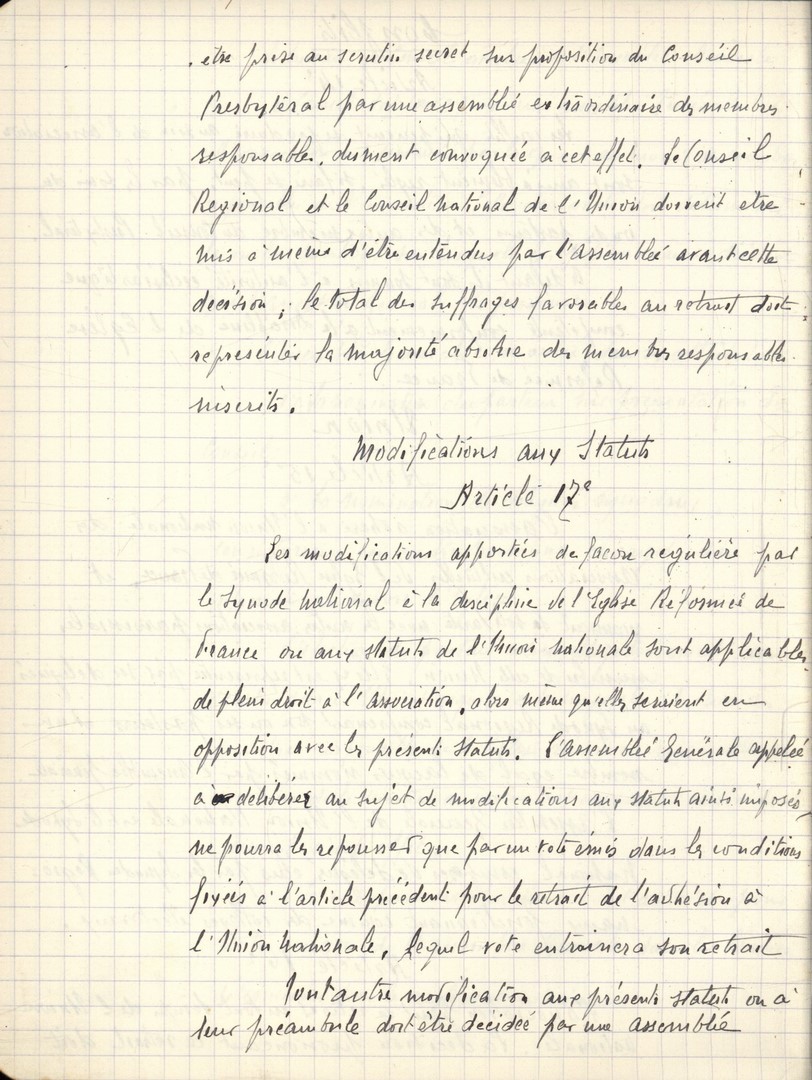 être prise au scrutin secret sur proposition du Conseil
Presbytéral par une assemblée extraordinaire des membres
responsables, dument convoquée à cet effet. Le Conseil
Regional et le Conseil national de l'Union doivent être
mis à même d'être entendus par l'assemblée avant cette
décision ; le total des suffrages favorables au retrait doit
représenter la majorité absolue des membres responsables
inscrits.
Modifications aux Statuts
Article 17e
Les modifications apportées de façon régulière par
le Synode National à la discipline de l'Eglise Réformée de
France ou aux statuts de l'Union nationale sont applicables
de plein droit à l'association, alors même qu'elles seraient en
opposition avec les présents statuts. L'assemblée Générale appelée
à délibérer au sujet de modifications aux statuts ainsi imposés,
ne pourra les repousser que par un vote émis dans les conditions
fixées à l'article précédent pour le retrait de l'adhésion à
l'Union Nationale, lequel vote entrainera son retrait
Tout autre modification aux présents statuts ou à
leur préambule doit être décidée par une assemblée